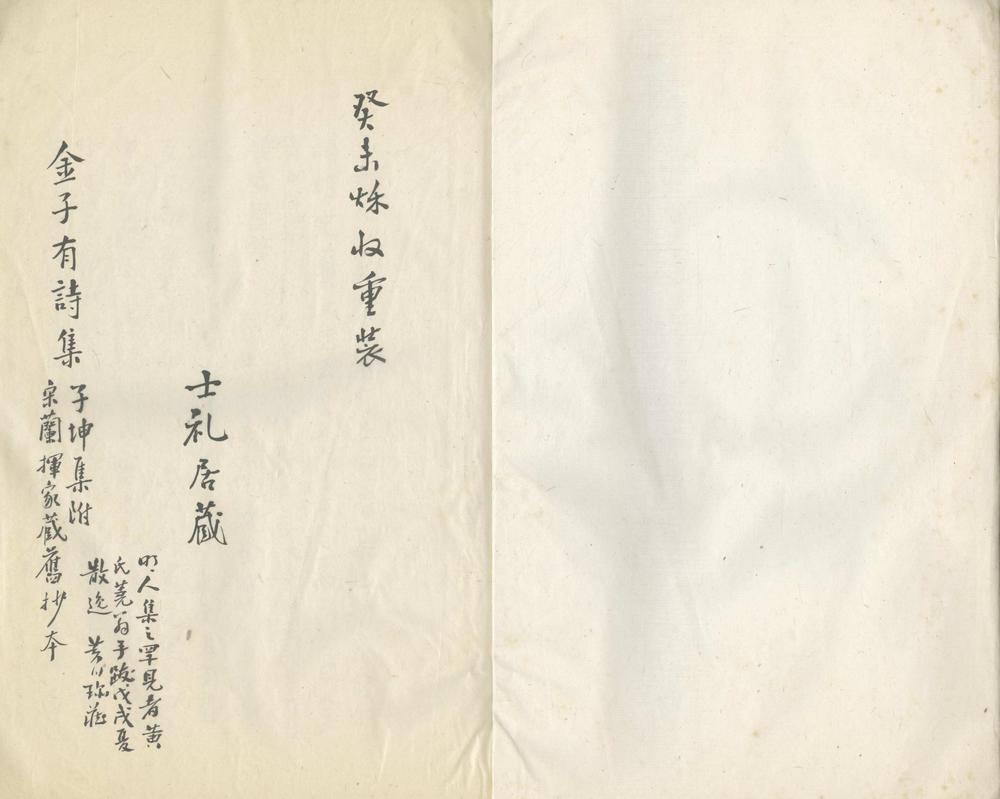 癸未烁收重裝
士礼居藏
明人集之罕見者黃
氏蕘翁手跋戊戌夏
散逸 芳川珎莊
金子有詩集
子坤集附
宋蘭揮家蔵舊抄本